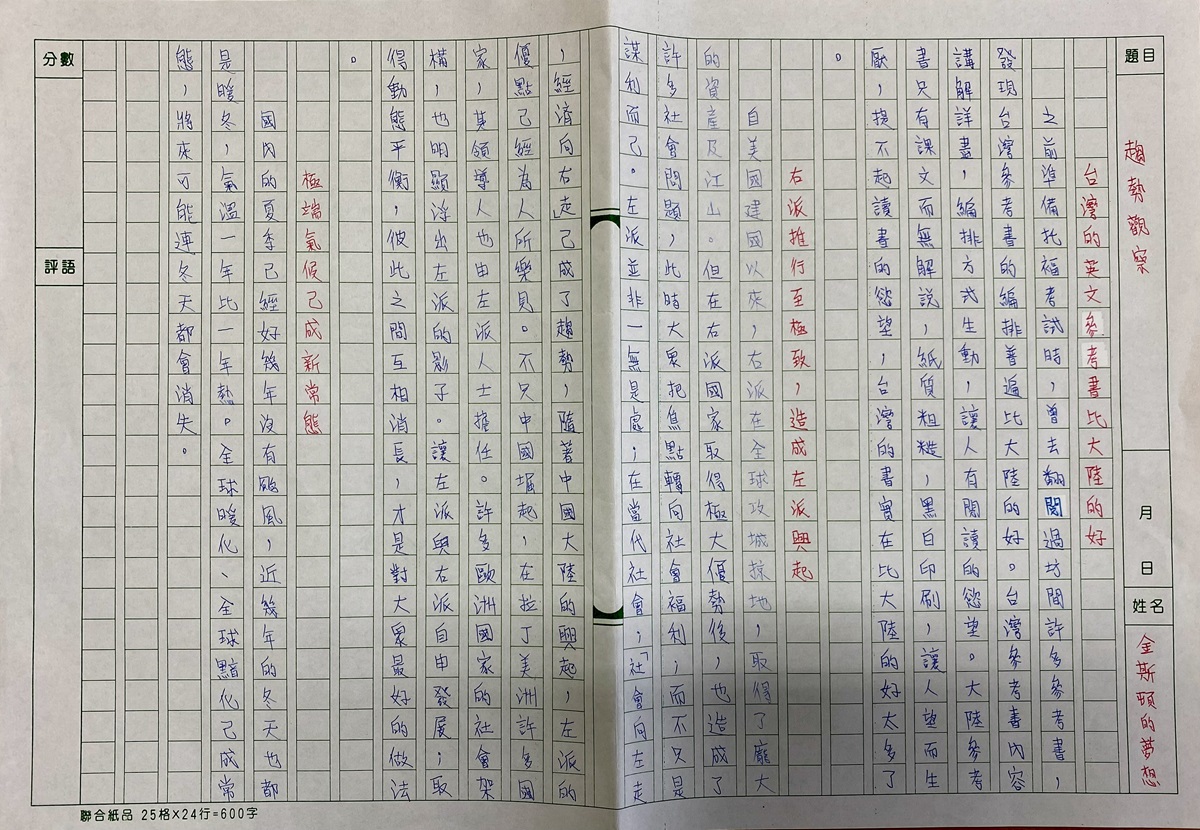 題目
趨勢觀察
月 日
姓名
金斯頓的夢想
台灣的英文參考書比大陸的好
之前準備托福考試時，曾去翻閱過坊間許多參考書，
發現台灣參考書的編排普遍比大陸的好。台灣參考書內容
講解詳盡，編排方式生動，讓人有閱讀的慾望。大陸參考
書只有課文而無解說，紙質粗糙，黑白印刷，讓人望而生
厭，提不起讀書的慾望，台灣的書實在比大陸的好太多了
。
右派推行至極致，造成左派興起
自美國建國以來，右派在全球攻城掠地，取得了龐大
的資產及江山。但在右派國家取得極大優勢後，也造成了
許多社會問題，此時大眾把焦點轉向社會福利，而不只是
謀利而已。左派並非一無是處，在當代社會，「社會向左走
，經濟向右走」已成了趨勢，隨著中國大陸的興起，左派的
優點已經為人所樂見。不只中國堀起，在拉丁美洲許多國
家，其領導人也由左派人士擔任。許多歐洲國家的社會架
構，也明顯浮出左派的影子。讓左派與右派自由發展；取
得動態平衡，彼此之間互相消長，才是對大眾最好的做法
。
極端氣候已成新常態
國內的夏季已經好幾年沒有颱風，近幾年的冬天也都
是暖冬，氣溫一年比一年熱。全球暖化、全球黯化已成常
態，將來可能連冬天都會消失。
分數
評語
聯合紙品 25格X24行=600字